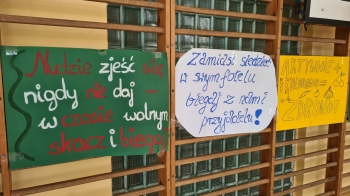 Nudzie zjeść się
nigdy nie daj -
w czasie wolnym
skacz i biegaj
Zamiast siedzieć
w swym fotelu
biegaj z nami
przyjacielu!
AKTYWNE